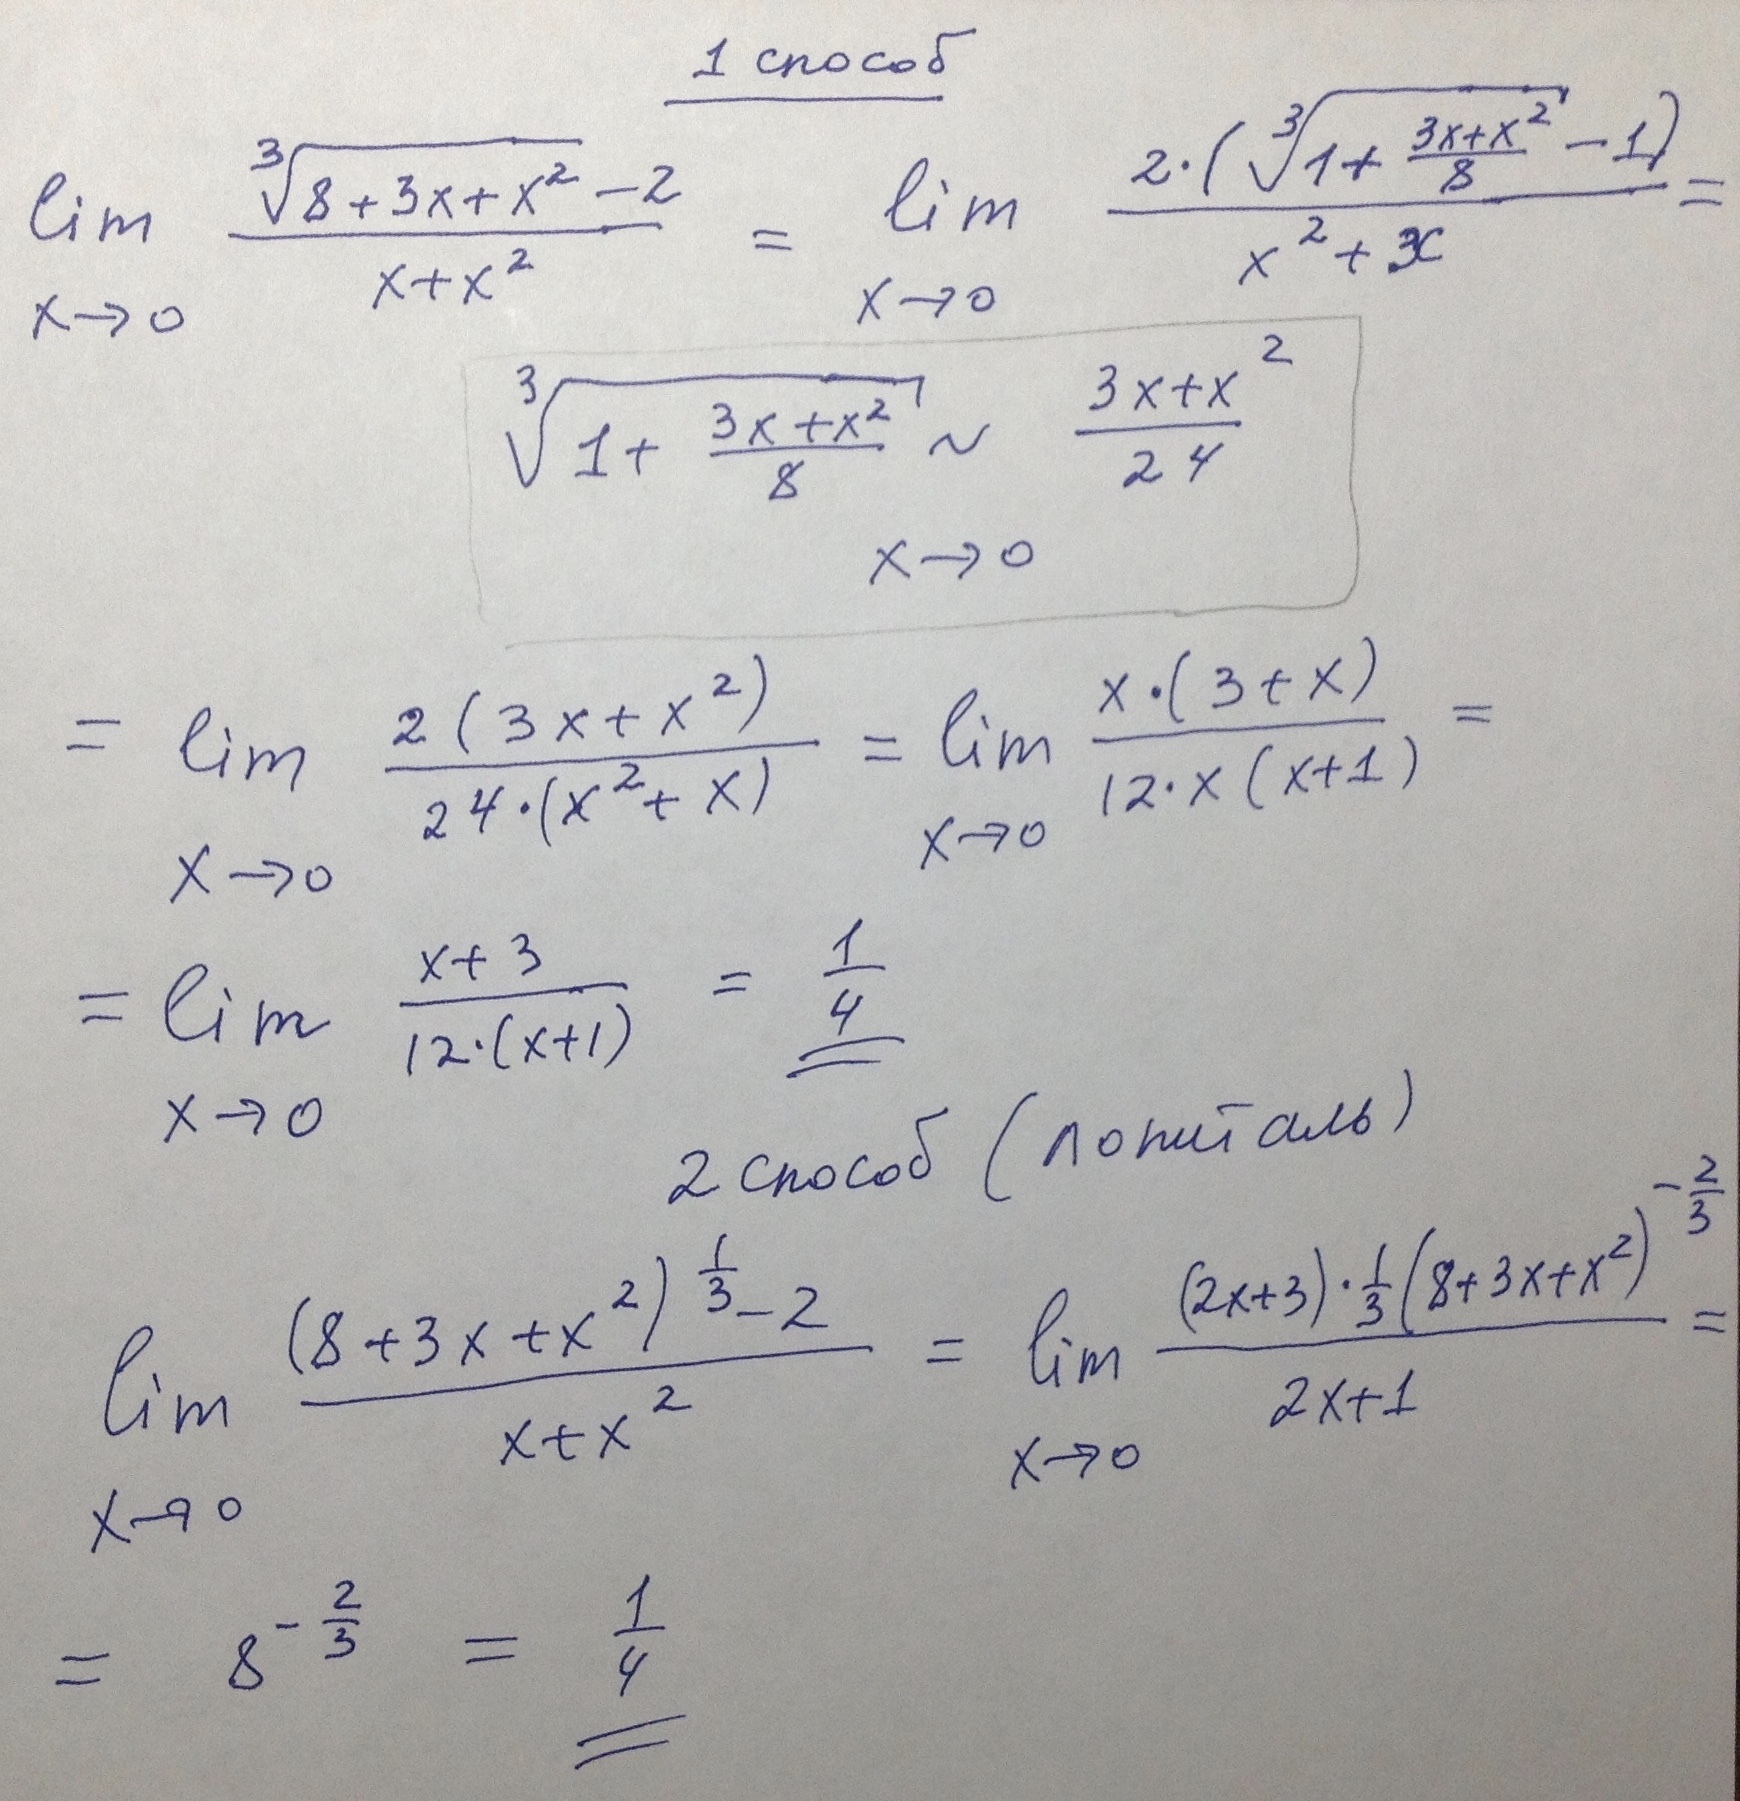 1 способ
lim x→0 (∛(8+3x+x²) −2)/(x+x²) = lim x→0 2·(∛(1+(3x+x²)/8) −1)/(x²+x) =
∛(1+(3x+x²)/8) ~ (3x+x²)/24
x→0
= lim x→0 2(3x+x²)/(24·(x²+x)) = lim x→0 x·(3+x)/(12·x(x+1)) =
= lim x→0 (x+3)/(12·(x+1)) = 1/4
2 способ (лопиталь)
lim x→0 ((8+3x+x²)^(1/3) −2)/(x+x²) = lim x→0 ((2x+3)·1/3(8+3x+x²)^(−2/3))/(2x+1) =
= 8^(−2/3) = 1/4